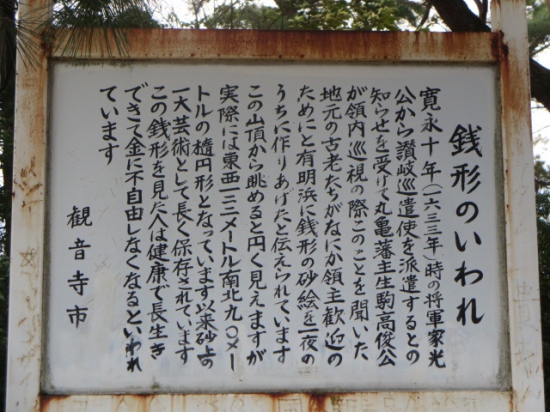 銭形のいわれ
寛永十年（一六三三年）時の将軍家光
公から讃岐巡遣使を派遣するとの
知らせを受けて丸亀藩主生駒高俊公
が領内巡視の際このことを聞いた
地元の古老たちがなにか領主歓迎の
ためにと有明浜に銭形の砂絵を一夜の
うちに作りあげたと伝えられています
この山頂から眺めると円く見えますが
実際には東西一二二メートル南北九〇メー
トルの楕円形となっています以来砂上の
一大芸術として長く保存されています
この銭形を見た人は健康で長生き
できて金に不自由しなくなるといわれ
ています
観音寺市